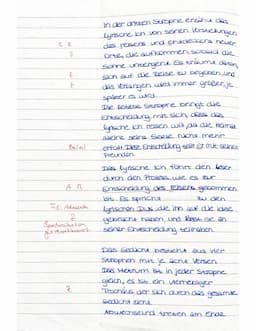 In der dritten Strophe erzählt das
lyrische Ich von seinen Vorstellungen
des Reisens und Entdeckens neuer
Orte, die aufkommen, sobald die
Sonne untergeht. Es träumt davon,
sich auf die Reise zu begeben, und
das Verlangen wird immer größer, je
später es wird.
Die letzte Strophe bringt die
Entscheidung mit sich, dass das
lyrische Ich reisen will, da die Heimat
alleine seine Seele nicht mehr
erfüllt. Diese Entscheidung teilt er mit seinen
Freunden.
Das lyrische Ich führt den Leser
durch den Prozess, wie es zur
Entscheidung des Reisens gekommen
ist. Es spricht zu den
lyrischen Dus, die ihn auf die Idee
gebracht haben, und lässt sie an
seiner Entscheidung teilhaben.
Das Gedicht besteht aus vier
Strophen mit je acht Versen.
Das Metrum ist in jeder Strophe
gleich, es ist ein vierhebiger
Trochäus, der sich durch das gesamte
Gedicht zieht.
Abwechselnd treten am Ende